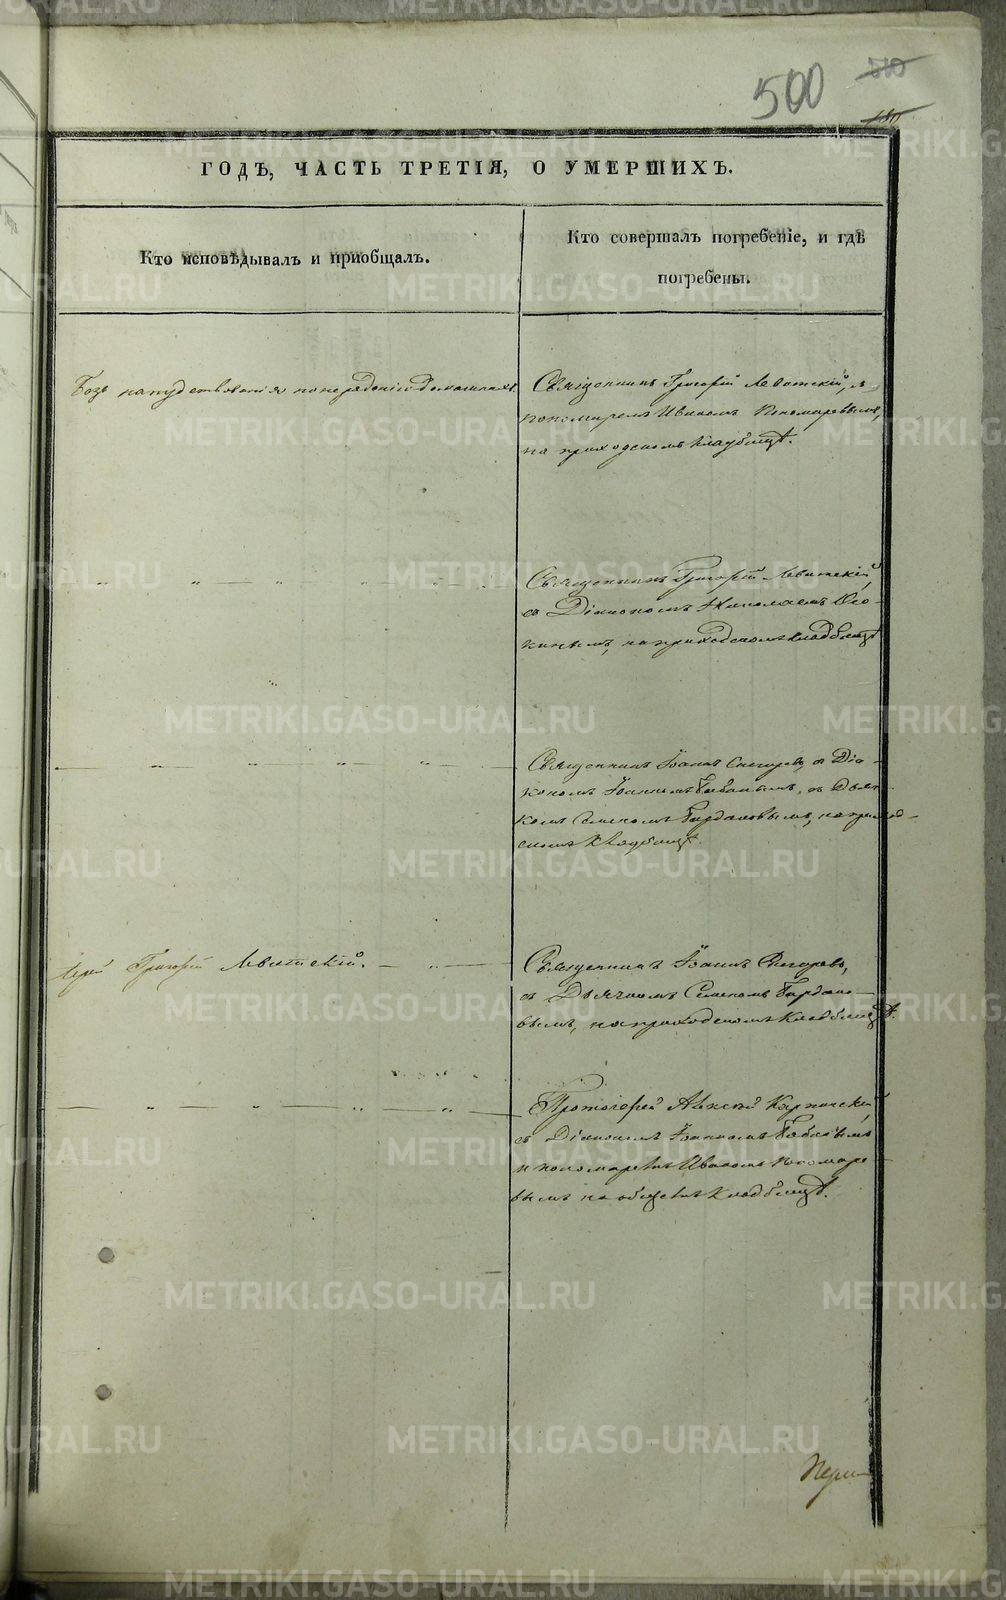 500
ГОДЪ, ЧАСТЬ ТРЕТІЯ, О УМЕРШИХЪ.
Кто исповѣдывалъ и пріобщалъ.
Кто совершалъ погребеніе, и гдѣ
погребены.
Безъ напудствованія по нерадѣнію домашнихъ
Священникъ Григорій Левитскій, съ
пономаремъ Иваномъ Пономаревымъ,
на приходскомъ кладбищѣ.
Священникъ Григорій Левитскій
съ Діакономъ Николаемъ
кинымъ, на приходскомъ кладбищѣ
Священникъ Іоаннъ съ Діа-
кономъ Іоанномъ съ Дьяч-
комъ Семеномъ Бардаковымъ, на приход-
скомъ кладбищѣ.
Іерей Григорій Левитскій.
Священникъ Іоаннъ
съ Дьячкомъ Семеномъ Бардако-
вымъ, на приходскомъ кладбищѣ.
Протоіерей Алексій
съ Діакономъ Іоанномъ
и пономаремъ Иваномъ Пономаре-
вымъ на общемъ кладбищѣ.
METRIKI.GASO-URAL.RU